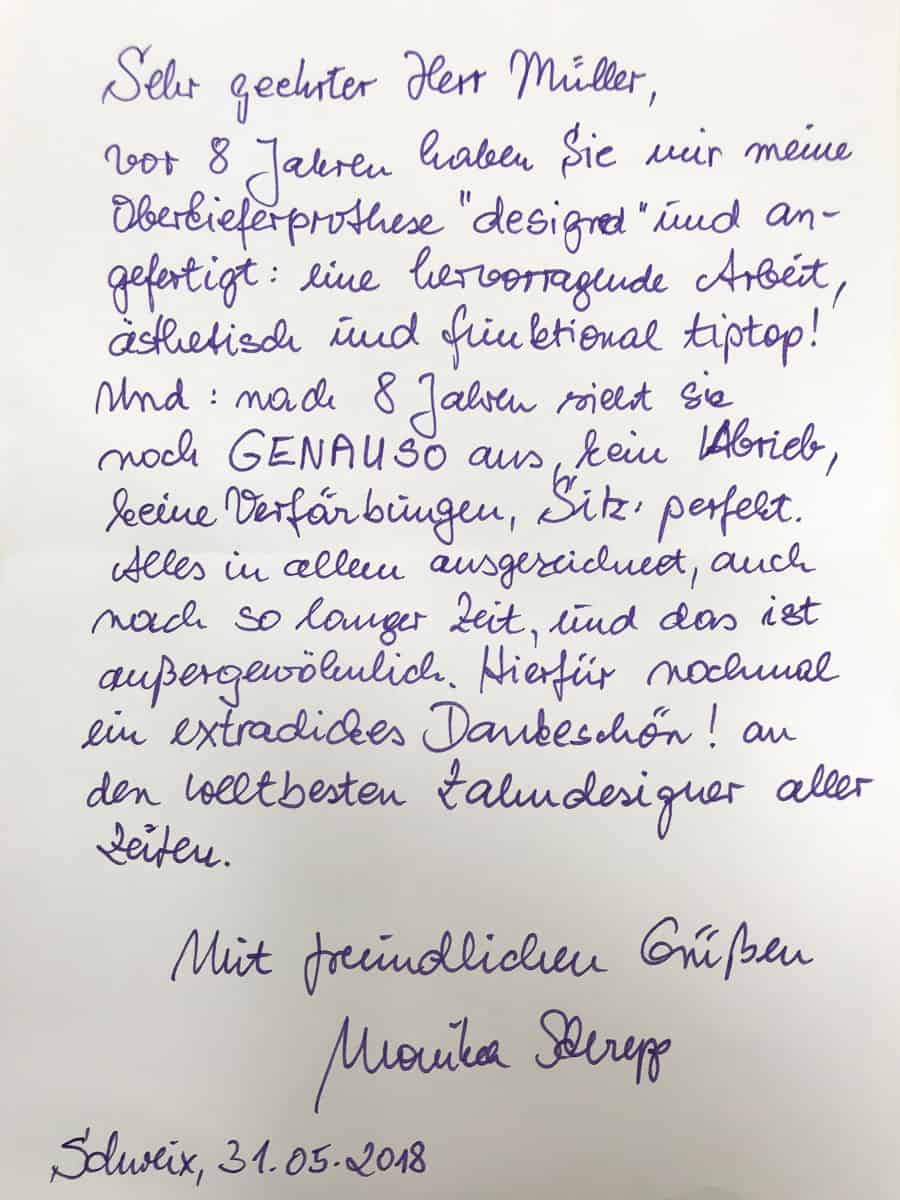 Sehr geehrter Herr Müller,
vor 8 Jahren haben Sie mir meine
Oberkieferprothese "designed" und an-
gefertigt: eine hervorragende Arbeit,
ästhetisch und funktional tiptop!
Und: nach 8 Jahren sieht sie
noch GENAUSO aus, kein Abrieb,
keine Verfärbungen, Sitz: perfekt.
Alles in allem ausgezeichnet, auch
nach so langer Zeit, und das ist
außergewöhnlich. Hierfür nochmal
ein extradickes Dankeschön! an
den weltbesten Zahndesigner aller
Zeiten.
Mit freundlichen Grüßen
Monika
Schweix, 31.05.2018